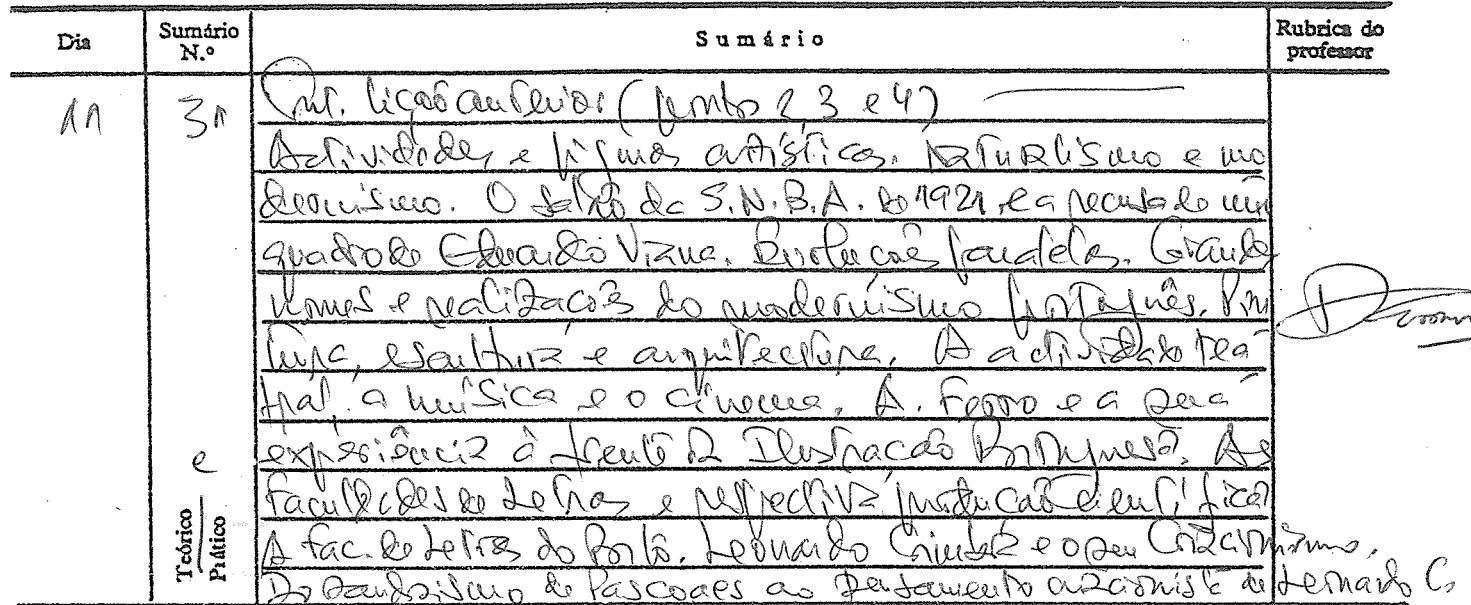 Dia Sumário N.º Sumário Rubrica do professor
11 31 Cont. lição anterior (pontos 2, 3 e 4)
Actividades e figuras artísticas. Naturalismo e mo
dernismo. O salão da S.N.B.A. de 1921, e a recusa de um
quadro de Eduardo Viana. Evolução paralela. Grandes
nomes e realizações do modernismo português. Pin
tura, escultura e arquitectura. A actividade tea
tral, a música e o cinema. A. Ferro e a sua
experiência à frente da Ilustração Portuguesa. As
e Faculdades de Letras e respectiva produção científica
Teórico Prático A Fac. de Letras do Porto. Leonardo Coimbra e o seu Criacionismo.
Do Saudosismo de Pascoaes ao pensamento criacionista de Leonardo C.